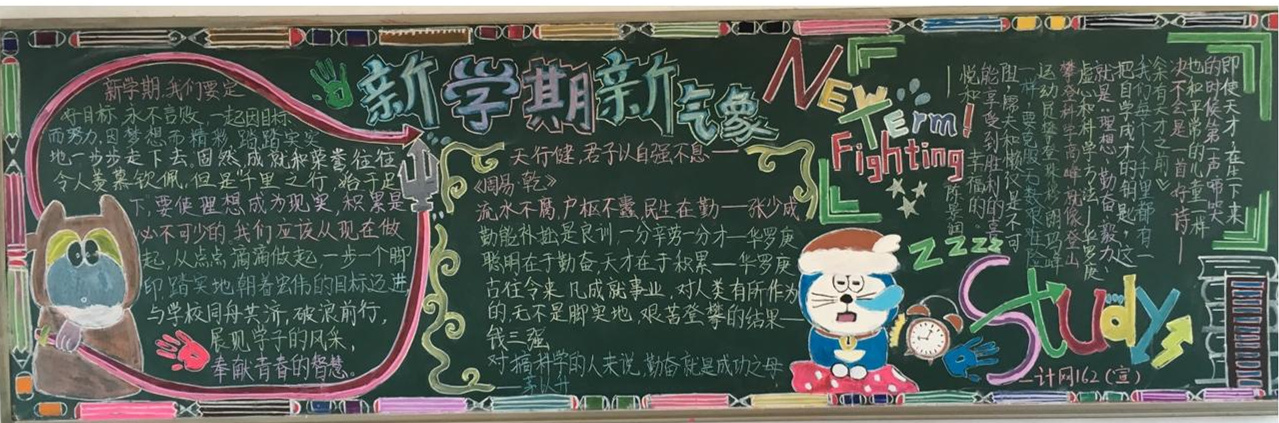 新学期新气象
NEW
Term!
Fighting
新学期,我们要定
好目标,永不言败,一起因目标
而努力,因梦想而精彩,踏踏实实
地一步步走下去。固然,成就和荣誉往往
令人羡慕钦佩,但是“千里之行,始于足
下”,要使理想成为现实,积累是
必不可少的,我们应该从现在做
起,从点点滴滴做起,一步一个脚
印,踏实地朝着宏伟的目标迈进
与学校同舟共济,破浪前行,
展见学子的风采,
奉献青春的智慧。
天行健,君子以自强不息——
《周易·乾》
流水不腐,户枢不蠹,民生在勤——张少成
勤能补拙是良训,一分辛劳一分才—华罗庚
聪明在于勤奋,天才在于积累—华罗庚
古往今来,凡成就事业,对人类有所作为
的无不是脚实地,艰苦登攀的结果—
钱三强
对搞科学的人来说,勤奋就是成功之母
即使天才,在生下来
的时候第一声啼哭
也和平常的儿童一样
决不会是一首好诗—
我们每个人手里都有一
把自学成才的钥匙,这
就是:理想、勤奋、毅力、
虚心和科学方法—华罗庚
攀登科学高峰,就像登山
能享受到胜利的喜
悦和幸福的。
陈景润
ZZZZ
Study
—计网162(宣)